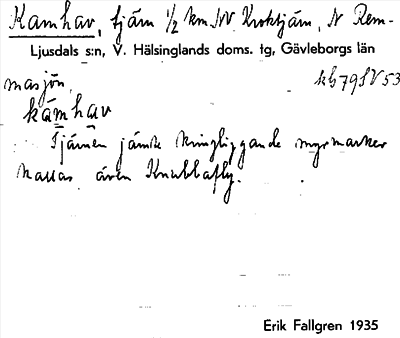 Kamhav, tjärn ½ km NV Kroktjärn, N Rem-
Ljusdals s:n, V. Hälsinglands doms. tg, Gävleborgs län
masjön.
kämhav
Tjärnen jämte kringliggande myrmarker
kallas även Knubbafly.
Erik Fallgren 1935